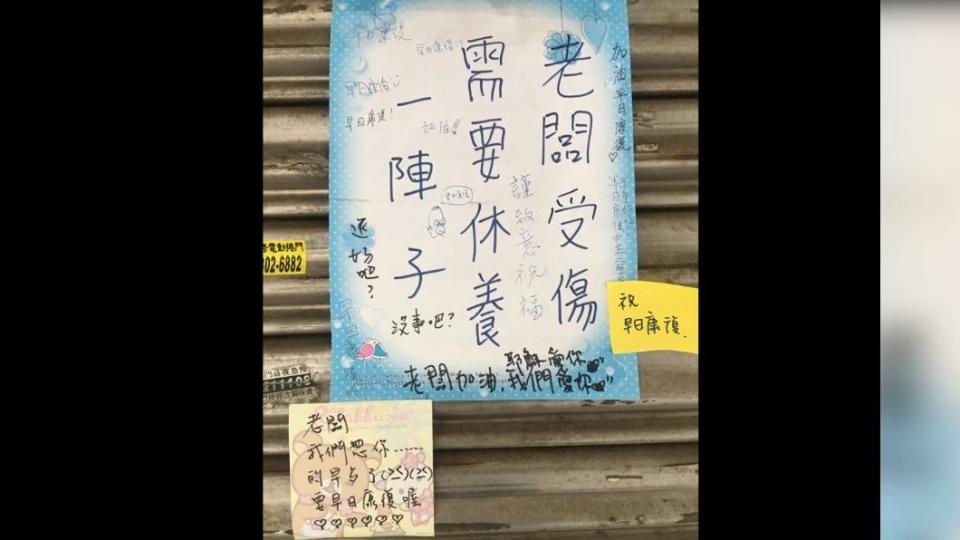 老闆受傷
需要休養
一陣子
加油早日康復♡
謹致意祝福
早日康復!
還好吧?
沒事吧?
耶穌愛你
老闆加油,我們愛你
祝
早日康復.
電動捲門
02-6882
老闆
我們想你……
的早点了(≥≤)(≥≤)
要早日康復喔
♡♡♡♡♡♡